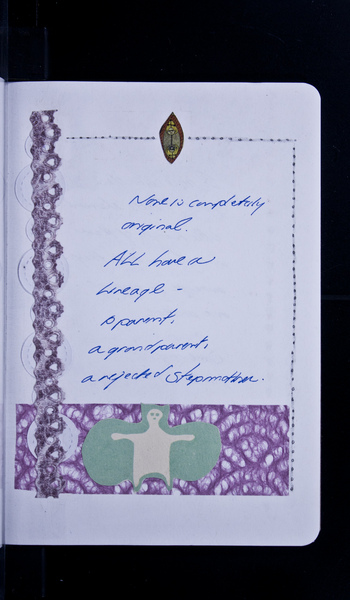 None is completely
original.
ALL have a
Lineage -
a parent,
a grandparent,
a rejected stepmother.